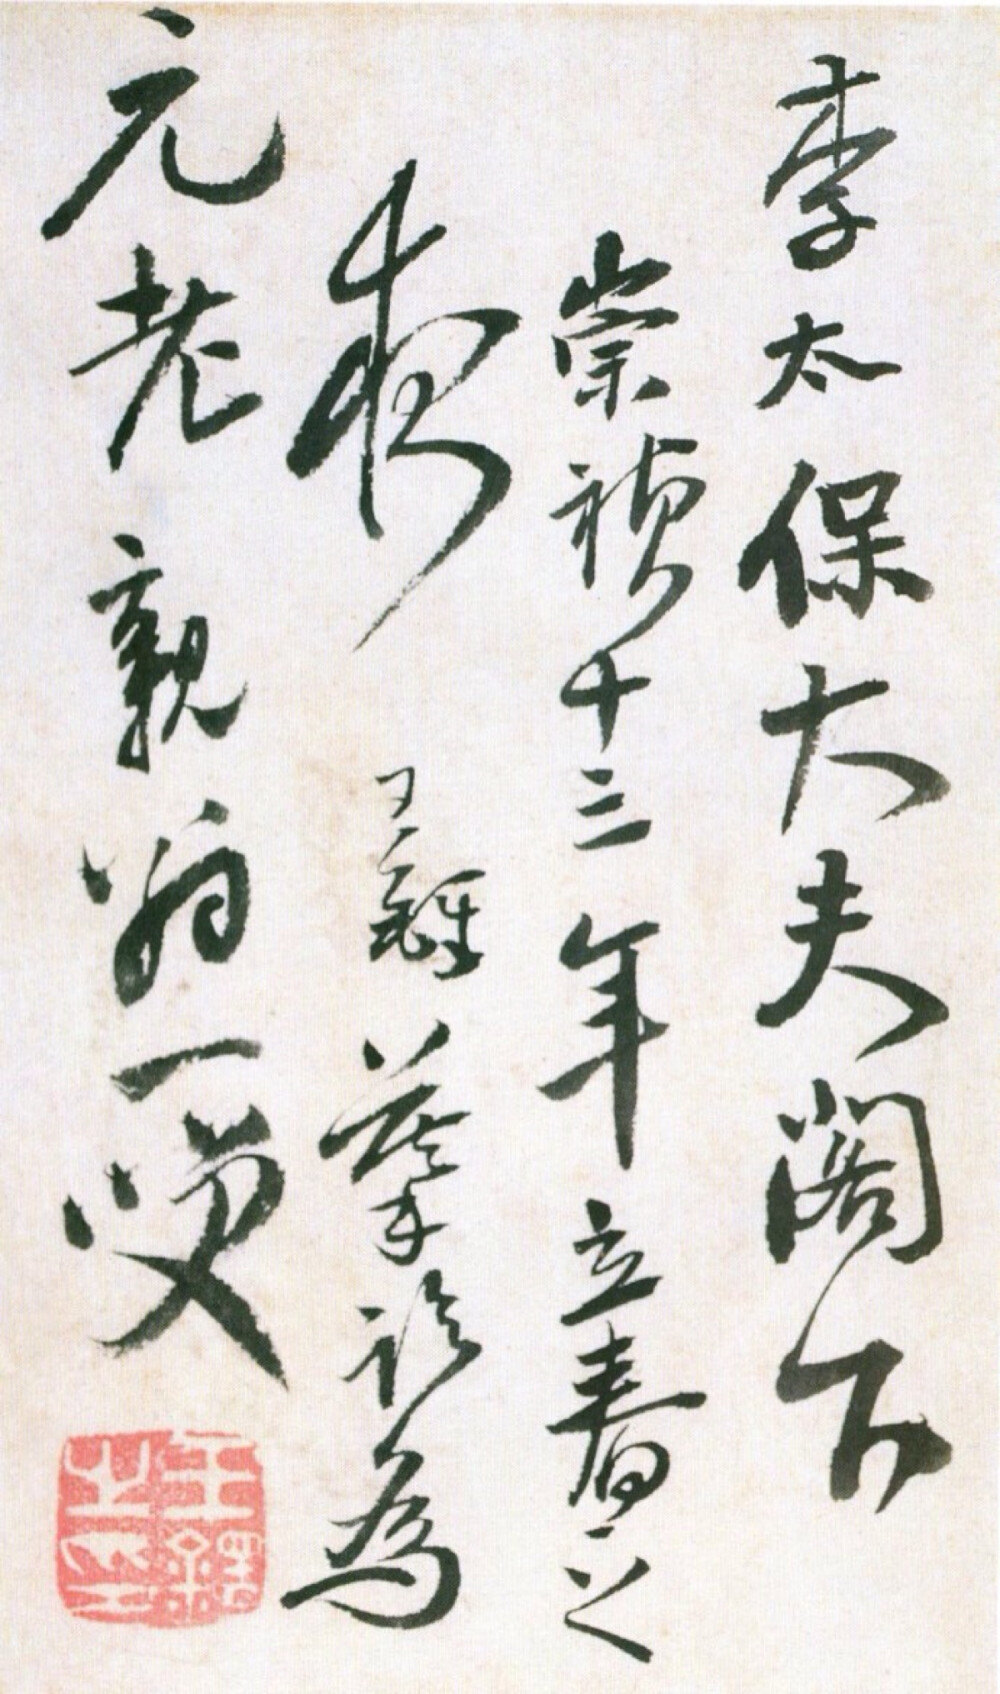 李太保大夫閣下
崇禎十三年立春之
夜 王鐸 草 診為
元老親翁一笑
王鐸之印